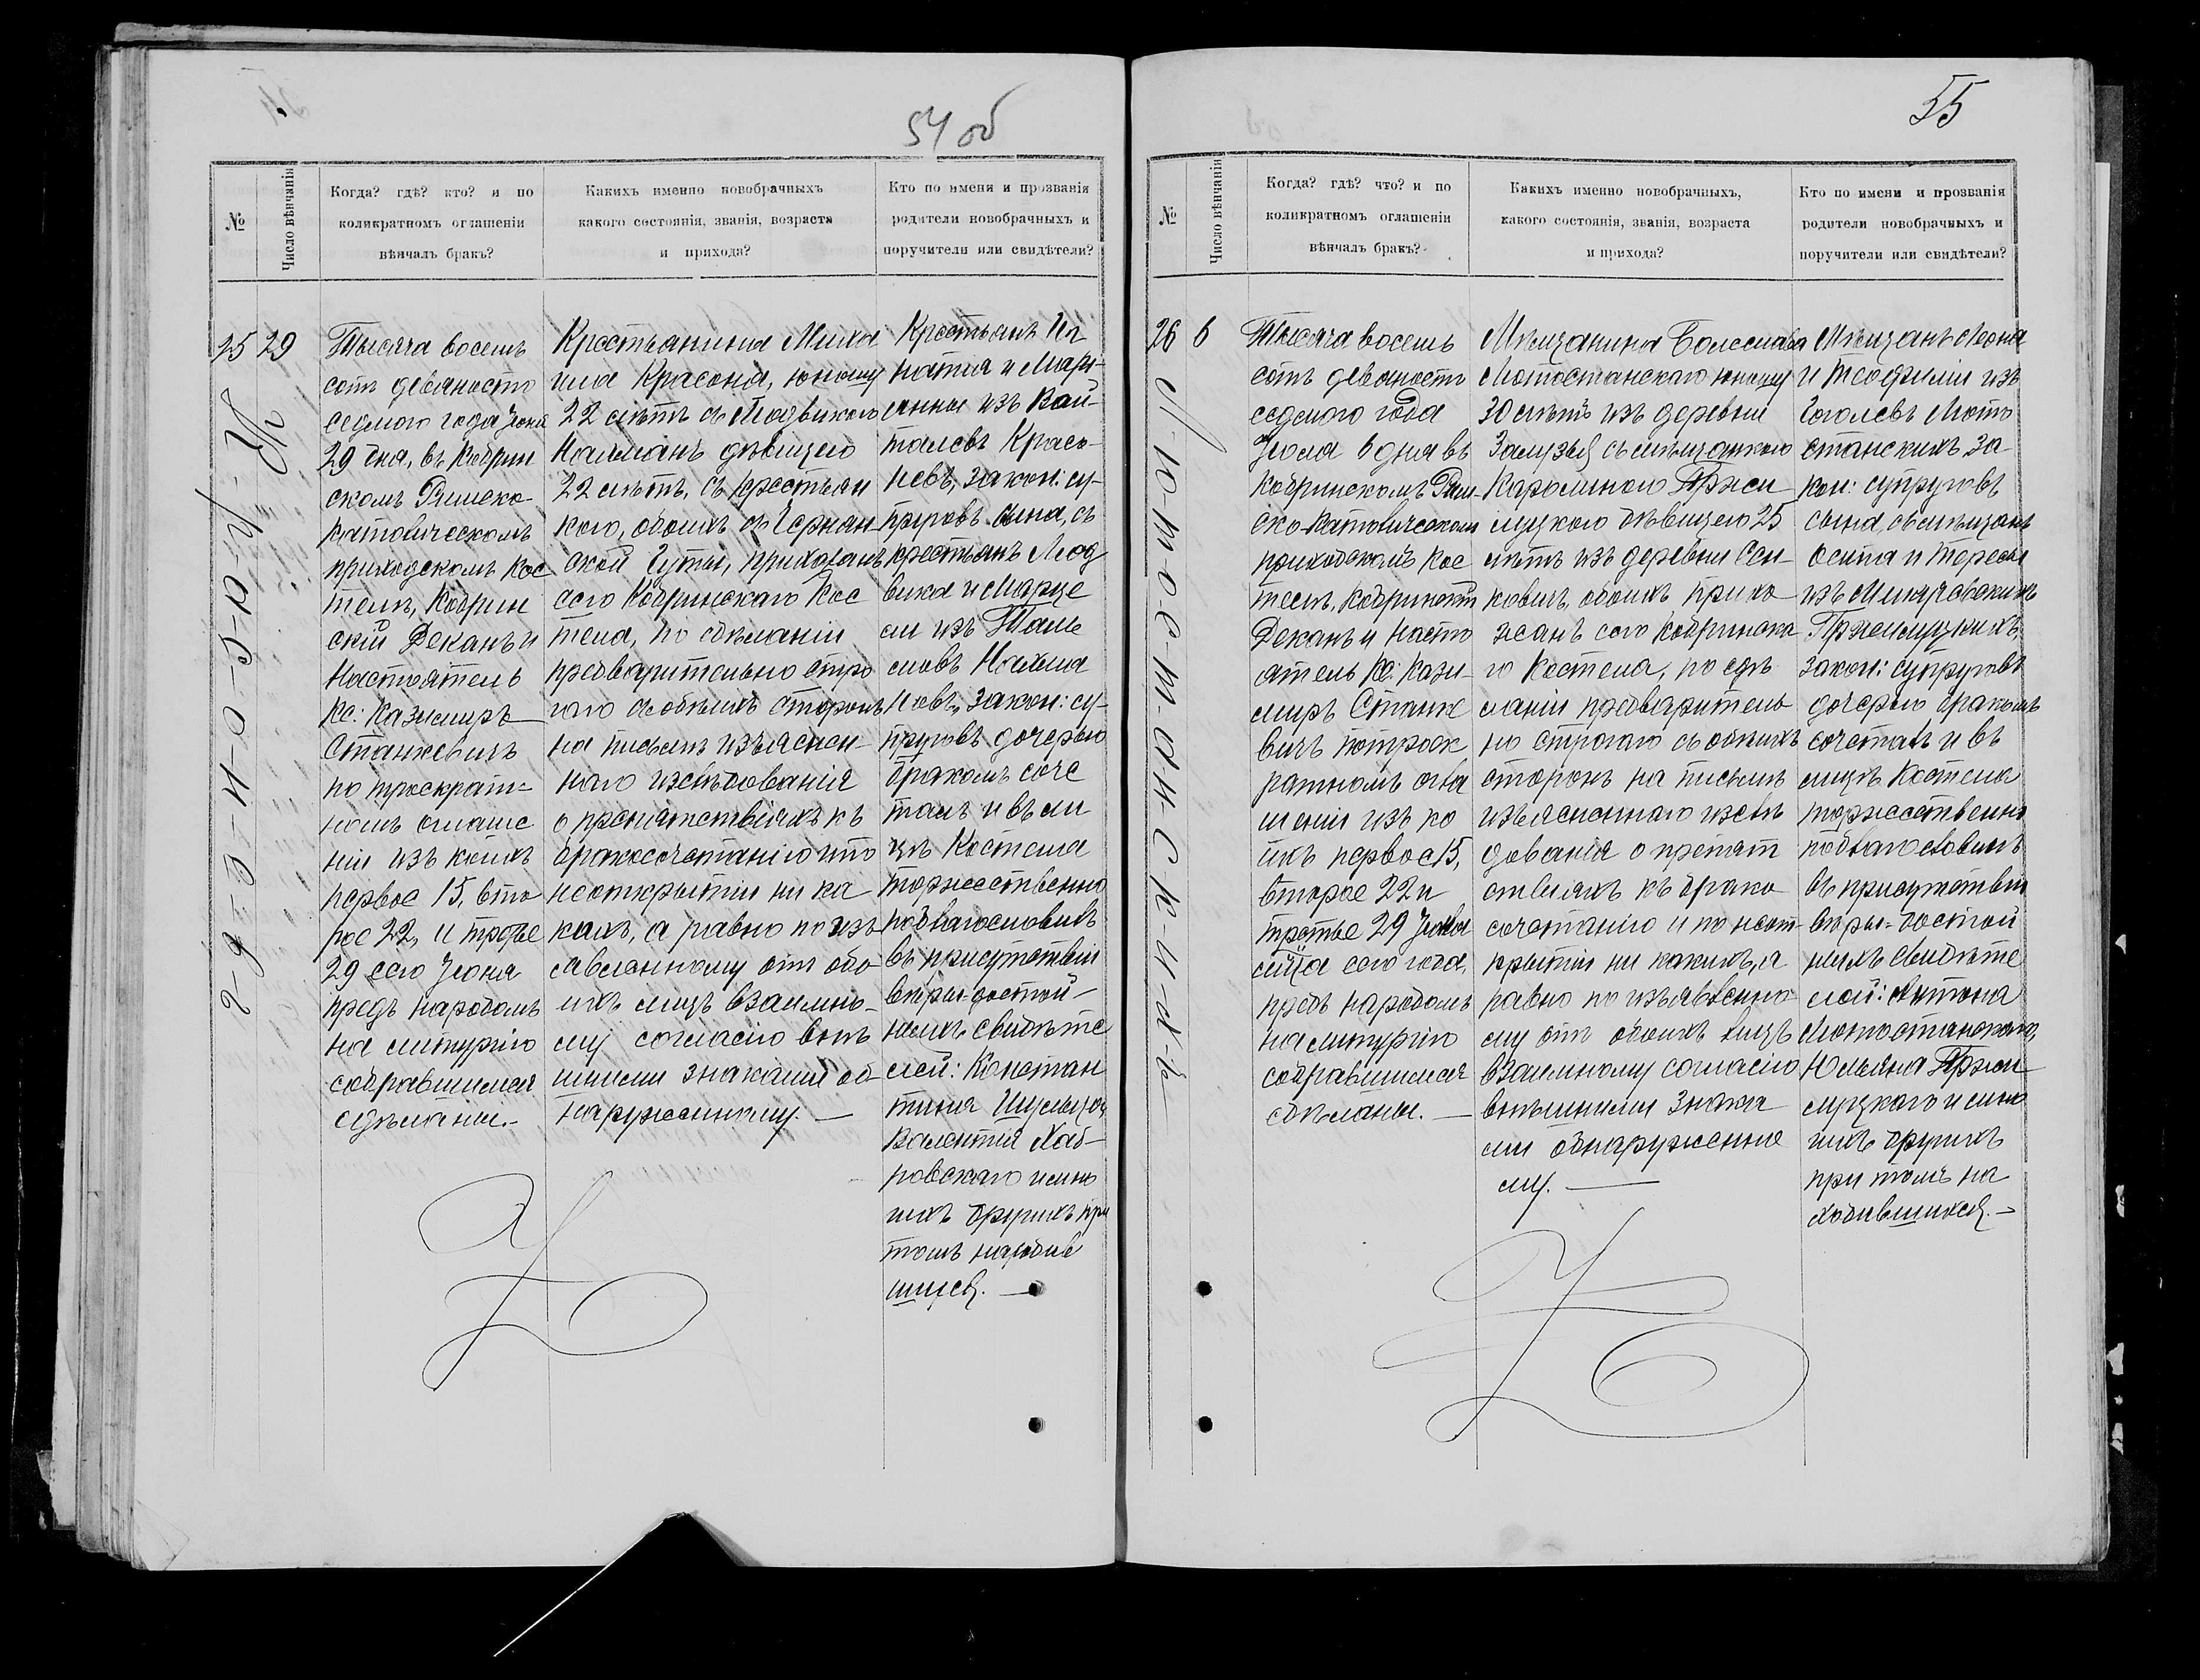 54 об
№
Число вѣнчанія
Когда? гдѣ? кто? и по
коликратномъ оглашеніи
вѣнчалъ бракъ?
Какихъ именно новобрачныхъ
какого состоянія, званія, возраста
и прихода?
Кто по имени и прозванія
родители новобрачныхъ и
поручители или свидѣтели?
25 29
Тысяча восемь
сотъ девяносто
седмого года Іюня
29 дня, въ Кобрин
скомъ Римско-
Католическомъ
приходскомъ Кос
телѣ, Кобрин
скій Деканъ и
Настоятель
Кс: Казимиръ
Станкевичъ
по троекрат-
номъ оглаше
ніи изъ коихъ
первое 15, вто
рое 22, и третье
29 сего Іюня
предъ народомъ
на литургію
собравшимся
сдѣланы.-
Крестьянина Миха
ила Красона, юношу
22 лѣтъ съ Людвикою
Найманъ дѣвицею
22 лѣтъ, съ крестьян
кою, обоихъ съ
Гуты, прихожанъ
сего Кобринскаго Кос
тела, по сдѣланіи
предварительно стро
гаго съ обѣихъ сторонъ
на письмѣ изъяснен-
наго изслѣдованія
о препятствіяхъ къ
бракосочетанію и по
неоткрытіи ни ка
кихъ, а равно по изъ-
явленному отъ обо
ихъ лицъ взаимно-
му согласію внѣ
шними знаками об-
наруженному. —
Крестьянъ Иг
натія и Мары-
янны изъ Вой-
талевъ Красо-
невъ, закон: су-
пруговъ сына, съ
крестьянъ Люд
вика и Марце
ли изъ
Найма
новъ, закон: су-
пруговъ дочерью
бракомъ соче
талъ и въ ли
цѣ Костела
торжественно
поблагословилъ
въ присутствіи
вѣры-достой-
ныхъ свидѣте
лей: Констан
тина
Валентія Хаб-
ровскаго и мно
гихъ другихъ при
томъ находив
шихся. —
55
№
Число вѣнчанія
Когда? гдѣ? что? и по
коликратномъ оглашеніи
вѣнчалъ бракъ?
Какихъ именно новобрачныхъ,
какого состоянія, званія, возраста
и прихода?
Кто по имени и прозванія
родители новобрачныхъ и
поручители или свидѣтели?
26 6
Л-ю-т-о-с-т-а-н-с-к-и-х-ъ
Тысяча восемь
сотъ девяность
седмого года
Іюля 6 дня въ
Кобринскомъ Рим-
ско-Католическомъ
приходскомъ Кос
телѣ, Кобринскій
Деканъ и Насто
ятель Кс. Кази-
миръ Станке
вичъ по троек
ратномъ огла
шеніи изъ ко
ихъ первое 15,
второе 22 и
третье 29 Іюня
м-ца сего года,
предъ народомъ
на литургію
собравшимся
сдѣланы. —
Мѣщанина Болеслава
Лютостанскаго юношу
30 лѣтъ изъ деревни
съ мѣщанкою
Каролиною Пржем
мускою дѣвицею 25
лѣтъ изъ деревни Сен-
ковичъ, обоихъ прихо
жанъ сего Кобринска
го Костела, по сдѣ
ланіи предваритель
но строгаго съ обѣихъ
сторонъ на письмѣ
изъясненнаго изслѣ
дованія о препят
ствіяхъ къ брако
сочетанію и по неот-
крытіи ни какихъ, а
равно по изъявленно
му отъ обоихъ лицъ
взаимному согласію
внѣшними знака
ми обнаруженно
му. —
Мѣщанъ Леона
и Теофиліи изъ
Гоголевъ Люто
станскихъ за
кон: супруговъ
сына, съ мѣщанъ
Осипа и Тересы
изъ
закон: супруговъ
дочерью бракомъ
сочеталъ и въ
лицѣ Костела
торжественно
поблагословилъ
въ присутствіи
вѣры-достой
ныхъ свидѣте
лей: Антона
Лютостанскаго,
Юльяна
и мно
гихъ другихъ
при томъ на
ходившихся. —